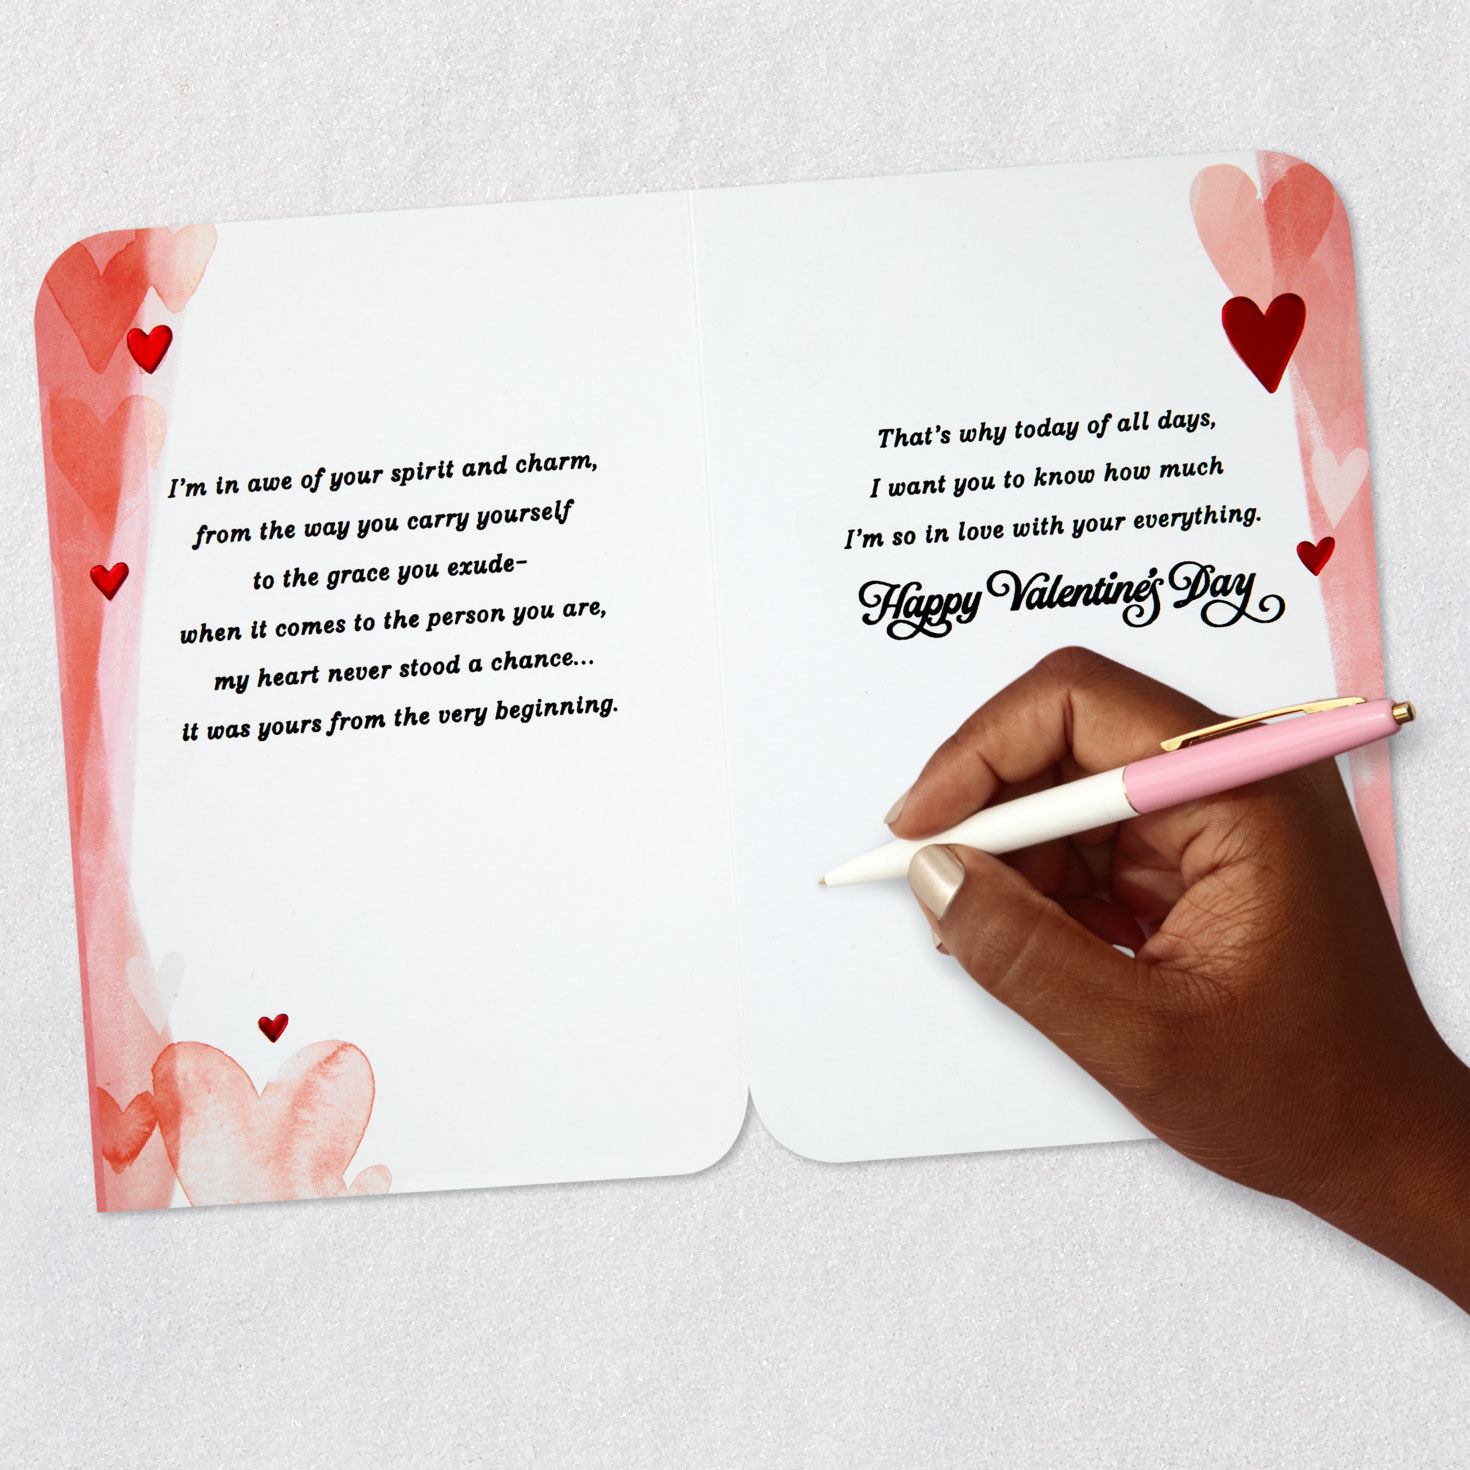 I'm in awe of your spirit and charm,
from the way you carry yourself
to the grace you exude–
when it comes to the person you are,
my heart never stood a chance...
it was yours from the very beginning.
That's why today of all days,
I want you to know how much
I'm so in love with your everything.
Happy Valentine's Day